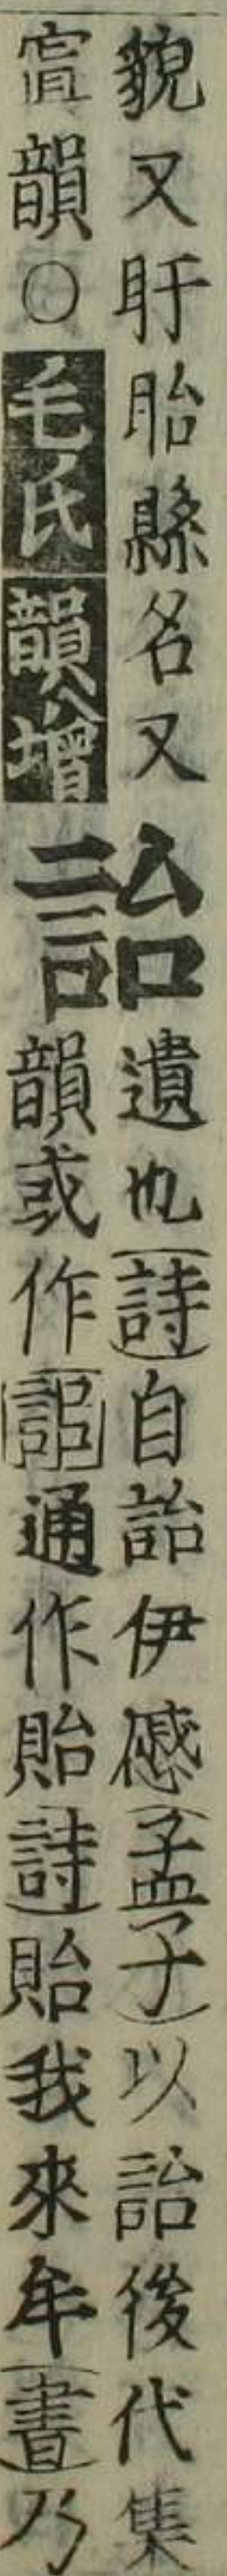 貌又盱眙縣名又
寘韻○毛氏韻增
詒
遺也詩自詒伊慼孟子以詒後代集
韻或作通作貽詩貽我來牟書乃